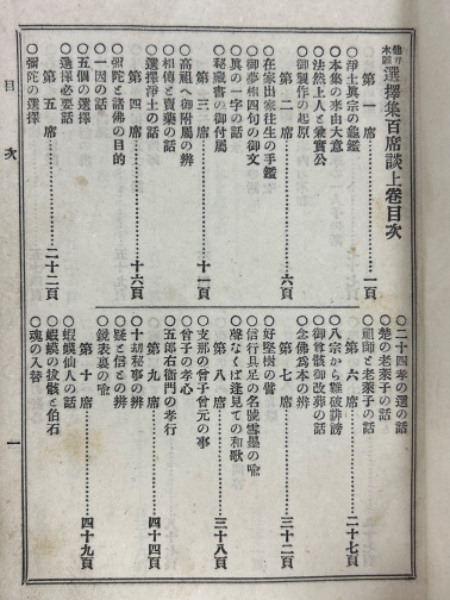 他力
本願
選擇集百席談上卷目次
第一席……一頁
○淨土眞宗の龜鑑
○本集の來由大意
○法然上人と兼實公
○御製作の起原
第二席……六頁
○在家出家往生の手鑑
○御夢想四句の御文
○眞の一字の話
○秘藏書の御付屬
第三席……十一頁
○高祖へ御附屬の辨
○相傳と賣藥の話
○選擇淨土の話
第四席……十六頁
○彌陀と諸佛の目的
○一因の話
○五個の選擇
○選擇必要話
第五席……二十二頁
○彌陀の選擇
○二十四孝の選の話
○楚の老萊子の話
○祖師と老萊子の話
第六席……二十七頁
○八宗から難破誹謗
○御曾骸御改葬の話
○念佛爲本の辨
第七席……三十二頁
○好堅樹の譬
○信行具足の名號雪墨の喩
○聲なくば逢見ての和歌
第八席……三十八頁
○支那の曾子曾元の事
○曾子の孝心
○五郎右衛門の孝行
第九席……四十四頁
○十劫秘事の辨
○疑と信との辨
○鏡表裏の喩
第十席……四十九頁
○蝦蟆仙人の話
○蝦蟆の拔骸と伯石
○魂の入替
目次
一